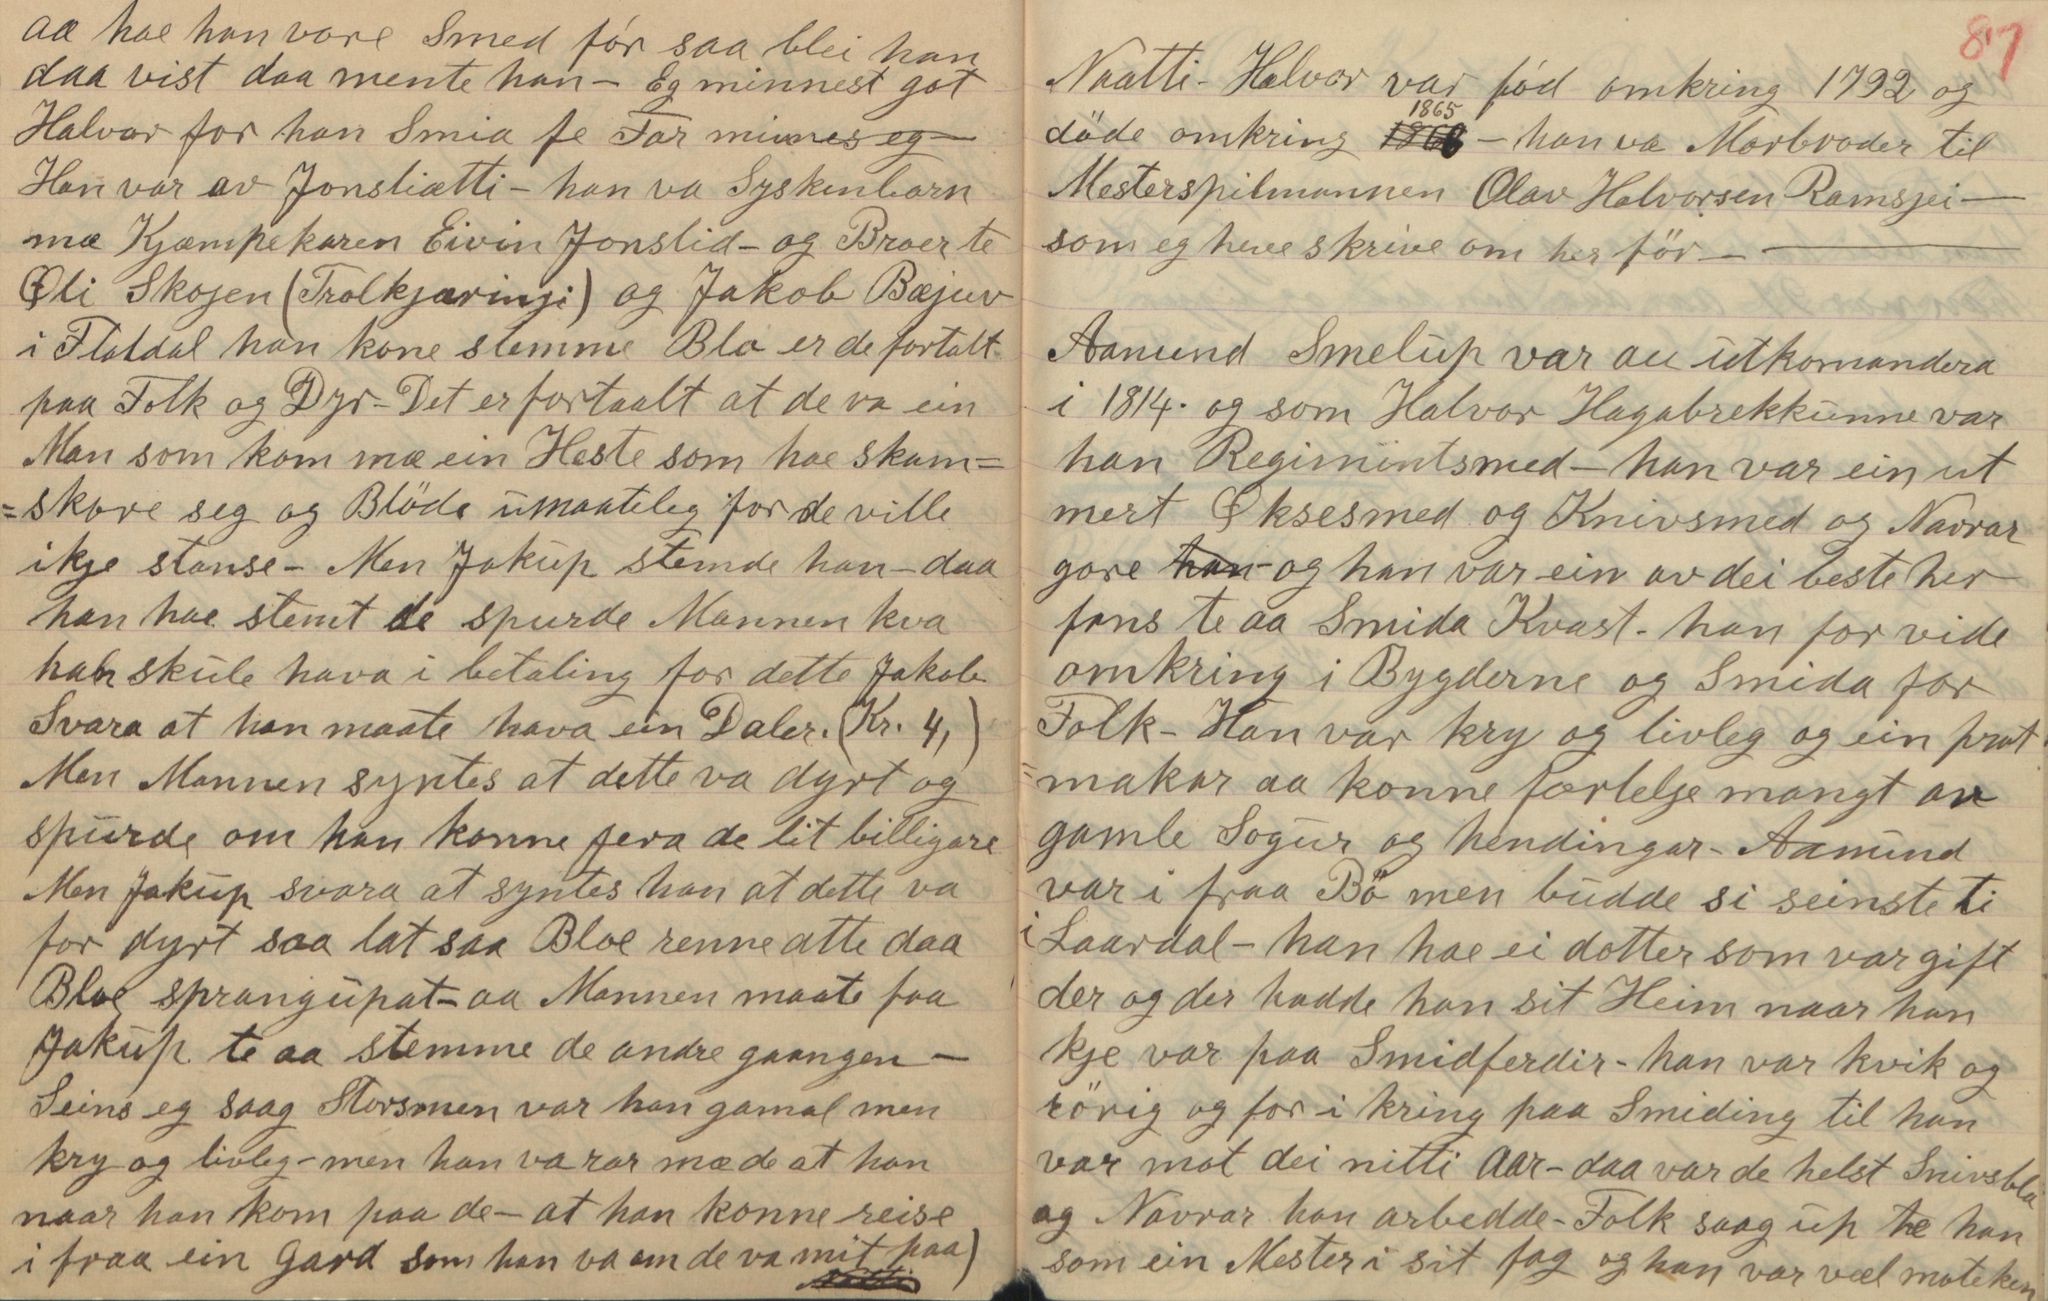 aa hae han vore Smed för saa blei han
daa vist daa mente han – Eg minnest got
Halvor for han Smia fe Far minnes eg –
Han var av Jonsliætti – han va Syskenbarn
mæ Kjæmpekaren Eivin Jonslid – og Broer te
Øli Skogen (Trolkjæringi) og Jakob Bæjuv
i Flatdal han kone stemme Blo er de fortalt
paa Folk og Dyr – Det er fortaalt at de va ein
Man som kom mæ ein Heste som hae skam=
=skore seg og Blöde umaateleg for de ville
ikje stanse – Men Jakup stemde han – daa
han hae stemt de spurde Mannen kva
han skule hava i betaling for dette Jakob
Svara at han maate hava ein Daler. (Kr. 4,)
Men Mannen syntes at dette va dyrt og
spurde om han konne jera de lit billigare
Men Jakup svara at syntes han at dette va
for dyrt saa lat saa Bloe renne atte daa
Bloe sprang upat – aa Mannen maate faa
Jakup te aa stemme de andre gaangen –
Seins eg saag Storsmen var han gamal men
kry og livleg – men han va rar mæ de at han
naar han kom paa de – at han konne reise
i fraa ein Gard som han va om de va mit paa)
Natti
87
Naatti-Halvor var föd omkring 1792 og
1865
döde omkring – han va Morbroder til
Mesterspilmannen Olav Halvorsen Ramsjei –
som eg heve skrive om her för –
Aamund Smelup var au utkomandera
i 1814. og som Halvor Hagabrekkunne var
han Regimintsmed – han var ein ut
mert Øksesmed og Knivsmed og Navrar
gore han – og han var ein av dei beste her
fans te aa Smida Kvast – han for vide
omkring i Bygderne og Smida for
Folk – Han var kry og livleg og ein prat
=makar aa konne fortelje mangt av
gamle Sogur og hendingar – Aamund
var i fraa Bö men budde si seinste ti
i Laardal – han hae ei dotter som var gift
der og der hadde han sit Heim naar han
kje var paa Smidferdir – han var kvik og
rörig og for i kring paa Smiding til han
var mot dei nitti Aar – daa var de helst Snivsbla
og Navrar han arbedde – Folk saag up te han
som ein Mester i sit fag og han var væl moteken